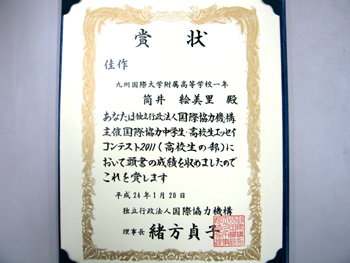 賞状
佳作
九州国際大学附属高等学校一年
筒井 絵美里 殿
あなたは独立行政法人国際協力機構
主催国際協力中学生・高校生エッセイ
コンテスト2011(高校生の部)に
おいて頭書の成績を収めましたので
これを賞します
平成24年1月20日
独立行政法人国際協力機構
理事長 緒方貞子